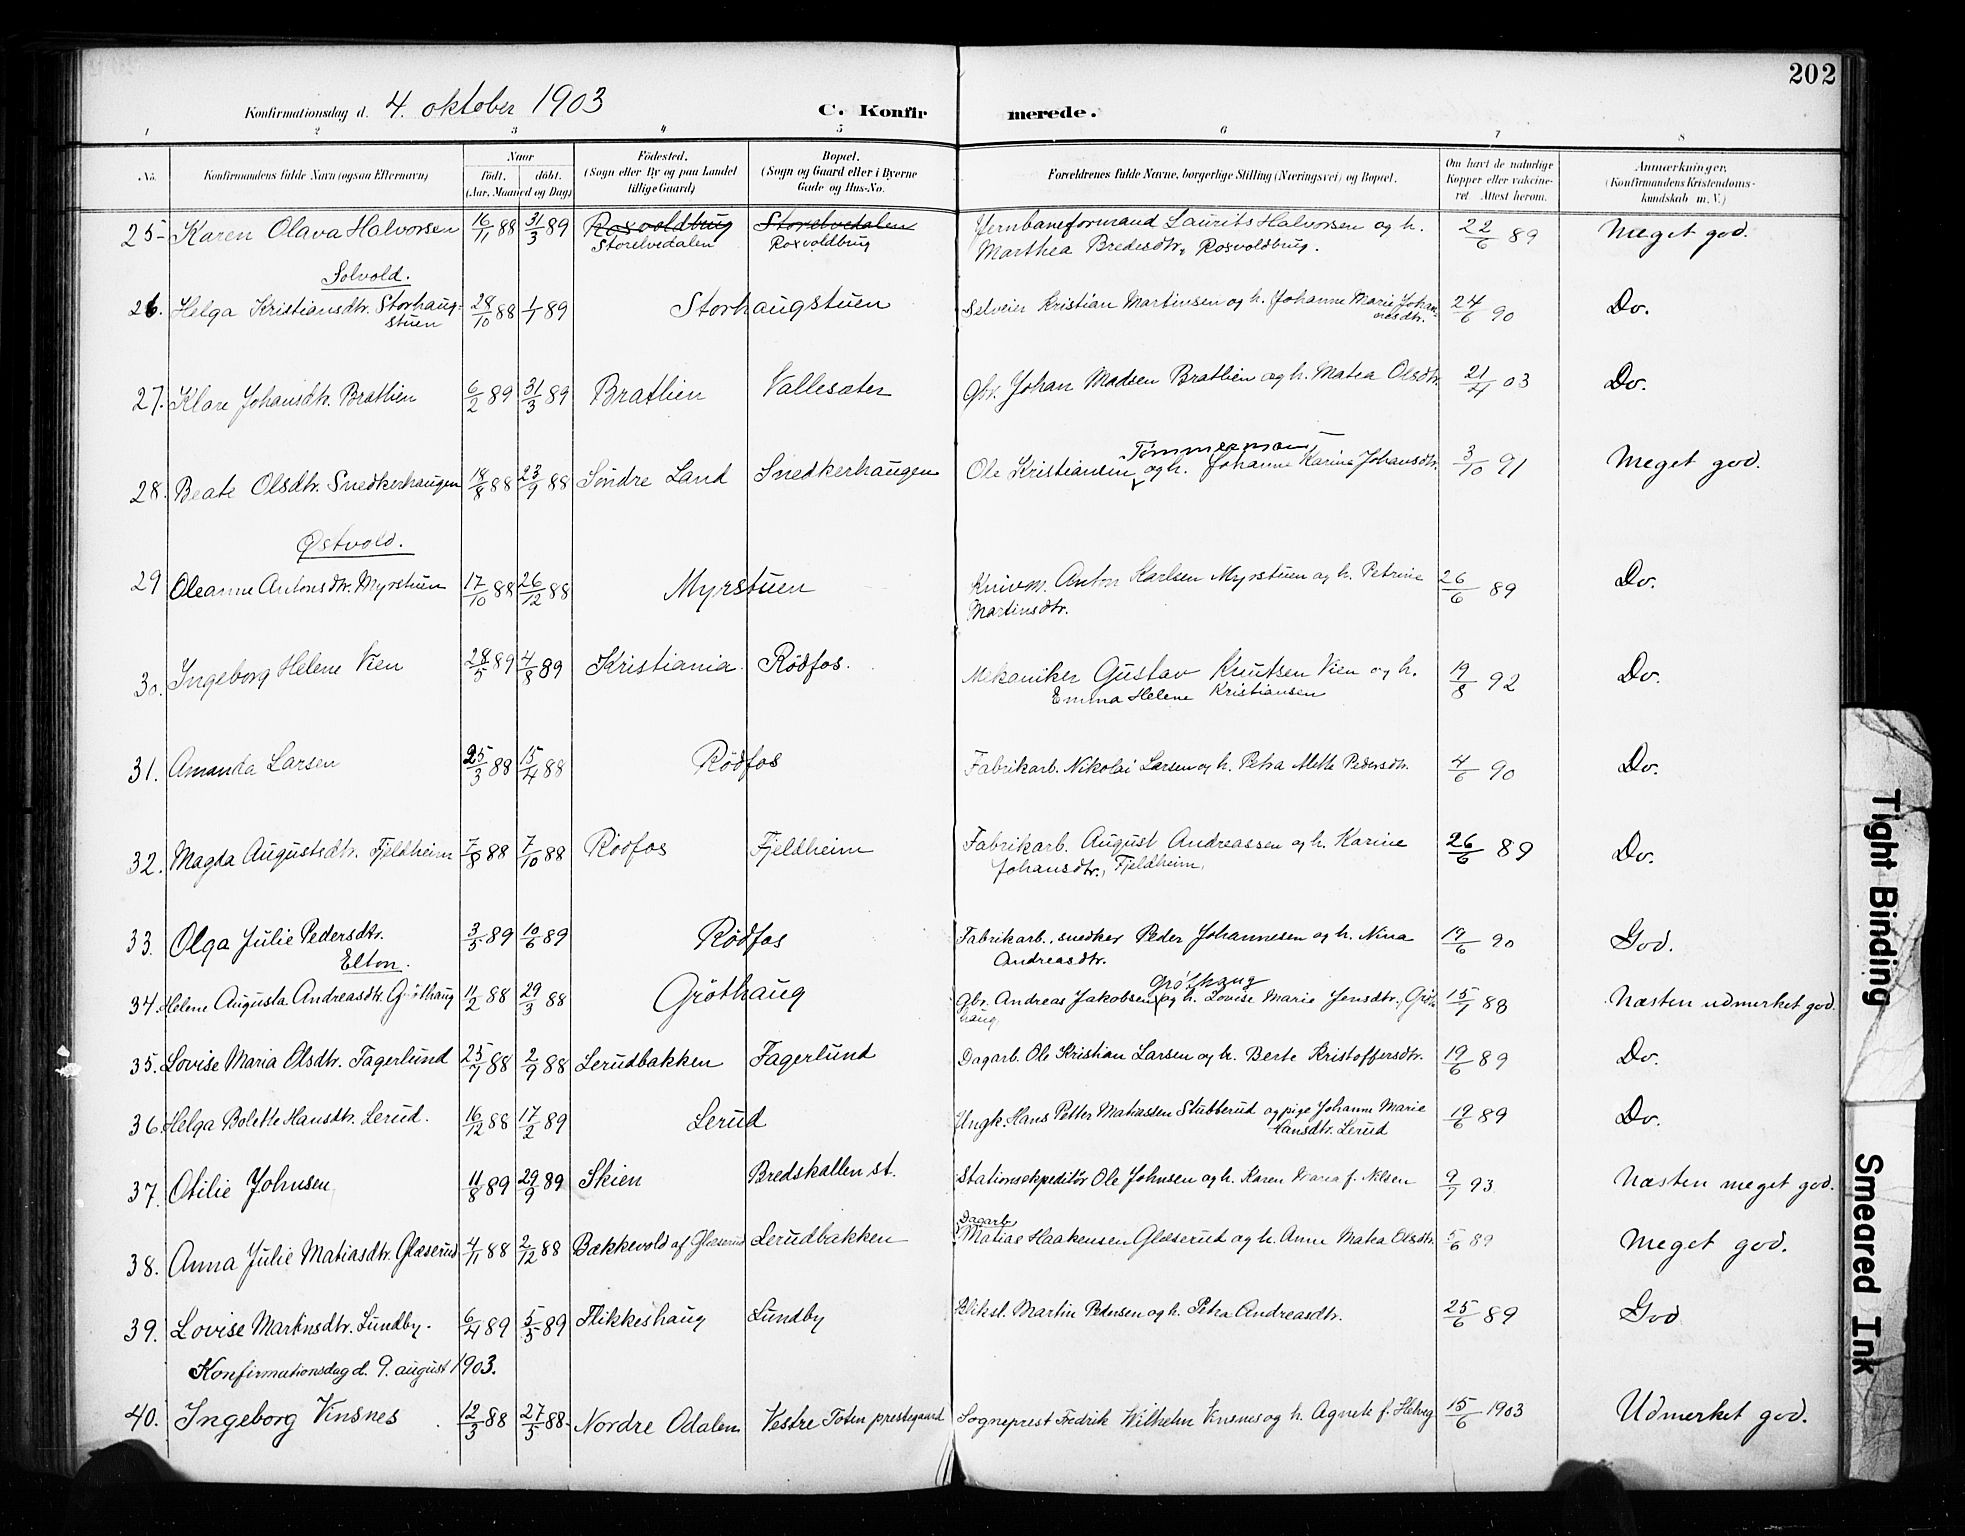 202
Konfirmationsdag d. 4. oktober 1903 C. Konfirmerede.
1 2 3 4 5 6 7 8
No. Konfirmandens fulde Navn (ogsaa Efternavn) Naar født. døbt. (Aar, Maaned og Dag) Fødested. (Sogn eller By og paa Landet tillige Gaard) Bopæl. (Sogn og Gaard eller i Byerne Gade og Hus-No. Forældrenes fulde Navne, borgerlige Stilling (Næringsvei) og Bopæl. Om havt de naturlige Kopper eller vaccineret Attest herom. Anmærkninger, (Konfirmandens Kristendomskundskab m. V.)
25 Karen Olava Halvorsen 16/11 88 31/3 89 Roxvoldbrug Storelvedalen Jernbaneformand Laurits Halvorsen og h. 22/6 89 Meget god.
Storelvedalen Roxvoldbrug Marthea Bredesdtr, Roxvoldbrug.
Solvold.
26. Helga Kristiansdtr. Storhaug- 28/10 88 1/1 89 Storhaugstuen Selveier Kristian Martinsen og h. Johanne Marie Johan- 24/6 90 Do.
stuen nesdtr.
27. Klara Johansdtr. Bratlien 6/2 89 31/3 89 Bratlien Vallesæter Gbr. Johan Madsen Bratlien og h. Matea Olsdtr. 21/4 03 Do.
Tømmermand
28. Beate Olsdtr. Snedkerhaugen 18/8 88 23/9 88 Søndre Land Snedkerhaugen Ole Kristiansen og h. Johanne Karine Johansdtr. 3/10 91 Meget god.
Østvold.
29 Oleanne Antonsdtr. Myrstuen 17/10 88 26/12 88 Myrstuen Knivm. Anton Karlsen Myrstuen og h. Petrine 26/6 89 Do.
Martinsdtr.
30. Ingeborg Helene Vien 28/5 89 4/8 89 Kristiania. Rødfos. Mekaniker Gustav Knutsen Vien og h. 19/8 92 Do.
Emma Helene Kristiansen
31. Amanda Larsen 25/3 88 15/4 88 Rødfos Fabrikarb. Nikolai Larsen og h. Petra Mette Pedersdtr. 4/6 90 Do.
32. Magda Augustsdtr. Fjeldheim 7/8 88 7/10 88 Rødfos Fjeldheim Fabrikarb. August Andreassen og h. Karine 26/6 89 Do.
Johansdtr., Fjeldheim.
33. Olga Julie Pedersdtr. 3/5 89 10/6 89 Rødfos Fabrikarb., snedker Peder Johannesen og h. Nina 19/6 90 God.
Elton. Andreasdtr.
Grøthaug
34. Helene Augusta Andreasdtr. Grøthaug 11/2 88 29/3 88 Grøthaug Gbr. Andreas Jakobsen og h. Lovise Marie Jensdtr., Grøt- 15/7 88 Næsten udmerket god.
haug
35. Lovise Maria Olsdtr. Fagerlund 25/7 88 2/9 88 Lerudbakken Fagerlund Dagarb. Ole Kristian Larsen og h. Berte Kristoffersdtr. 19/6 89 Do.
36. Helga Bolette Hansdtr. Lerud. 16/12 88 17/2 89 Lerud Ungk. Hans Petter Matiassen Stubberud og pige Johanne Marie 19/6 89 Do.
Hansdtr. Lerud
37. Otilie Johnsen 11/8 89 29/9 89 Skien Bredskallen st. Stationsekspeditør Ole Johnsen og h. Karen Maria f. Nilsen 9/7 93 Næsten meget god.
Dagarb.
38. Anna Julie Matiasdtr. Glæserud 4/11 88 2/12 88 Bækkevold af Glæserud Lerudbakken Matias Haakensen Glæserud og h. Anne Matea Olsdtr. 5/6 89 Meget god.
39. Lovise Martinsdtr. Lundby. 6/4 89 5/5 89 Flikkeshaug Lundby Bliksl. Martin Pedersen og h. Petra Andreasdtr. 25/6 89 God
Konfirmationsdag d. 9. august 1903.
40. Ingeborg Vinsnes 12/3 88 27/5 88 Nordre Odalen Vestre Toten prestegaard Sogneprest Fredrik Wilhelm Vinsnes og h. Agnete f. Helveg 15/6 1903 Udmerket god.
Tight Binding
Smeared Ink